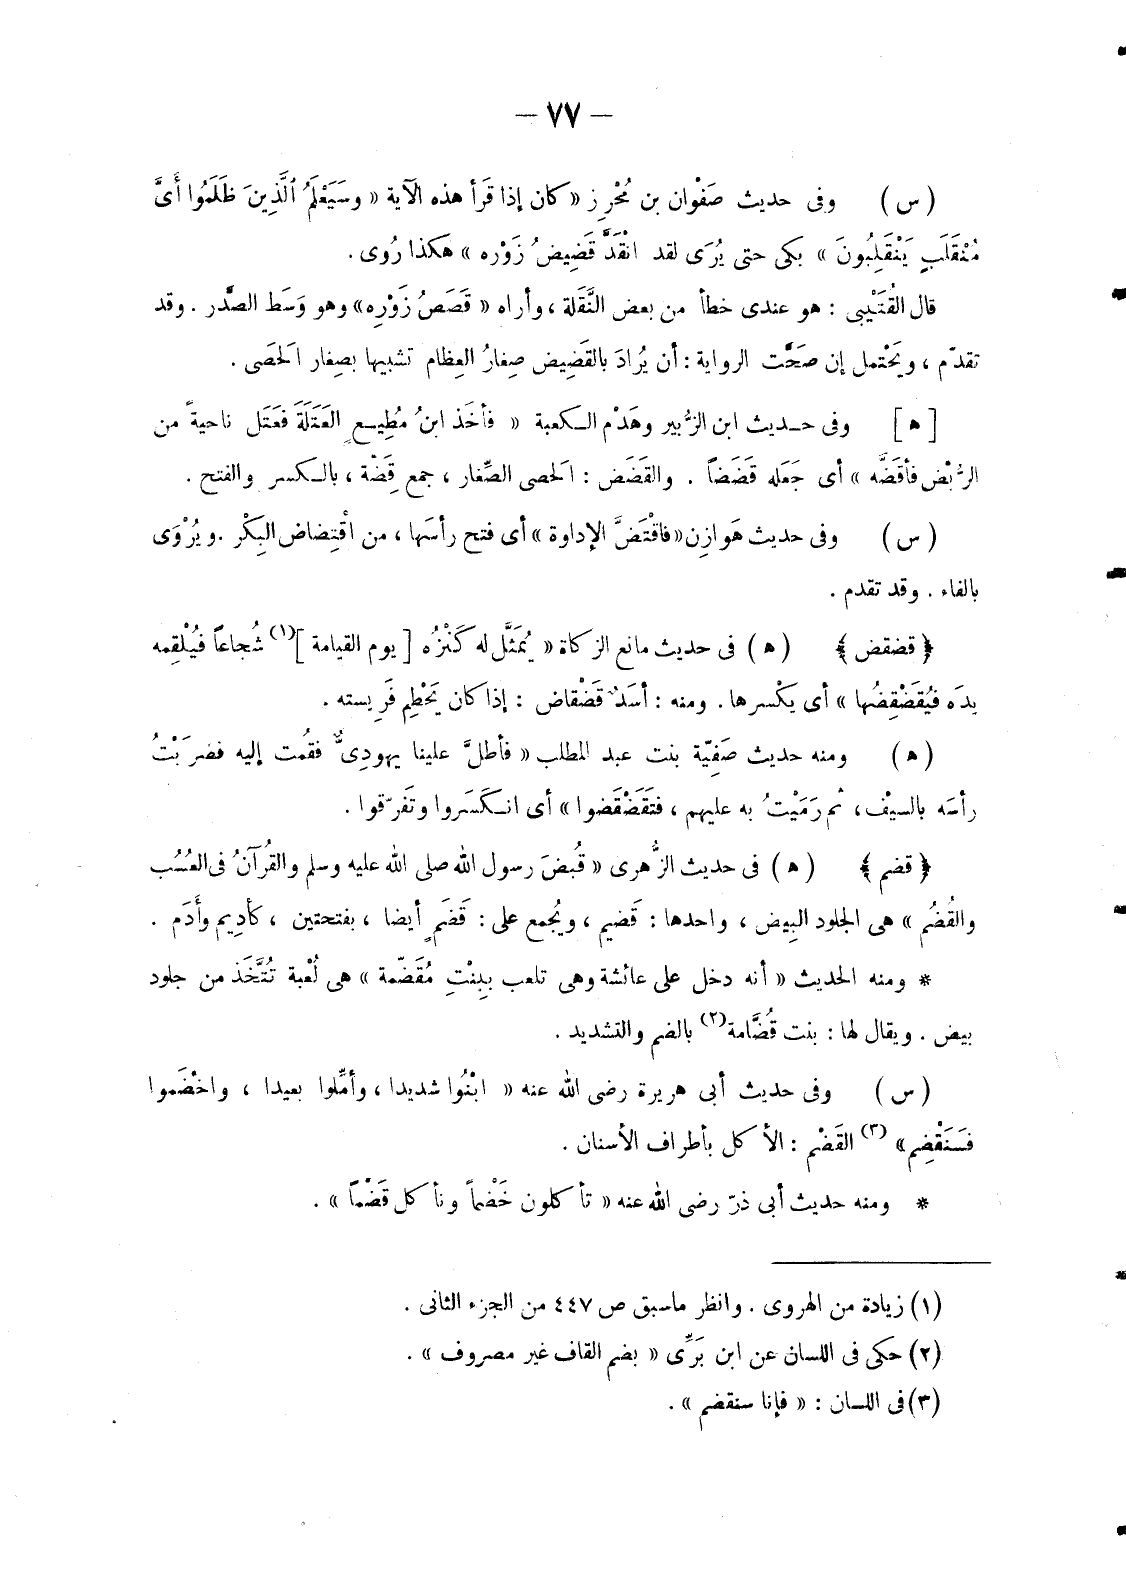 — ٧٧ —
( س ) وفى حديث صَفْوان بن مُحْرِز « كان إذا قَرَأ هذه الآية « وسَيَعْلَمُ ٱلَّذِينَ ظَلَمُوا أَىَّ
مُنْقَلَبٍ يَنْقَلِبُونَ » بكى حتى يُرَى لقد انْقَدَّ قَضِيضُ زَوْره » هَكذا رُوى .
قال القُتَيْبى : هو عندى خطأ من بعض النَّقَلة ، وأراه « قَصَصُ زَوْرِه» وهو وَسَط الصَّدر . وقد
تقدّم ، ويَحْتمل إن صَحَّت الرواية : أن يُرادَ بالقَضِيض صِغارُ العِظام تشبيها بصِغار الْحَصَى .
[ ه ] وفى حـديث ابن الزُّبير وهَدْم الـكعبة « فأخَذ ابنُ مُطِيـعٍ العَتَلَةَ فَعَتَل ناحيةً من
الرُّبْض فأقَضَّه » أى جَعَله قَضَضاً . والقَضَض : الْحَصى الصِّغار ، جمع قِضَّة ، بالـكسر والفتح .
( س ) وفى حديث هَوازِن «فاقْتَضَّ الإداوة » أى فتح رأسَها ، من اقْتِضاض البِكْر . ويُرْوَى
بالفاء . وقد تقدم .
﴿ قضقض ﴾ ( ه ) فى حديث مانع الزكاة « يُمَثَّل له كَنْزُه [ يوم القيامة ](١) شُجاعاً فَيُلْقِمه
يدَه فيُقَضْقِضُها » أى يكْسرها . ومنه : أسَدٌ قَضْقاض : إذا كان يَحْطِم فَرِيسته .
( ه ) ومنه حديث صَفِيّة بنت عبد المطلب « فأطلَّ علينا يهودِىٌّ فقُمت إليه فضرَبْتُ
رأسَه بالسيْف ، ثم رَمَيْتُ به عليهم ، فتَقَضْقَضوا » أى انـكَسَروا وتَفَرّقوا .
﴿ قضم ﴾ ( ه ) فى حديث الزُّهرى « قُبضَ رسول الله صلى الله عليه وسلم والقُرآنُ فى العُسُب
والقُضُم » هى الجلود البِيض ، واحدها : قَضيم ، ويُجمع على : قَضَمٍ أيضا ، بفتحتين ، كأدِيم وأَدَم .
* ومنه الحديث « أنه دخل على عائشة وهى تلعب ببِنْتِ مُقَضّمة » هى لُعْبة تُتَّخَذ من جلود
بيض . ويقال لها : بنت قُضَّامة(٢) بالضم والتشديد .
( س ) وفى حديث أبى هريرة رضى الله عنه « ابْنُوا شديدا ، وأمِّلوا بعيدا ، واخْضَموا
فَسَنَقْضِم» (٣) القَضْم : الأكل بأطراف الأسنان .
* ومنه حديث أبى ذرّ رضى الله عنه « تأكلون خَضْماً ونأكل قَضْماً » .
(١) زيادة من الهروى . وانظر ماسبق ص ٤٤٧ من الجزء الثانى .
(٢) حكى فى اللسان عن ابن بَرِّى « بضم القاف غير مصروف » .
(٣) فى اللسان : « فإنا سنقضم » .